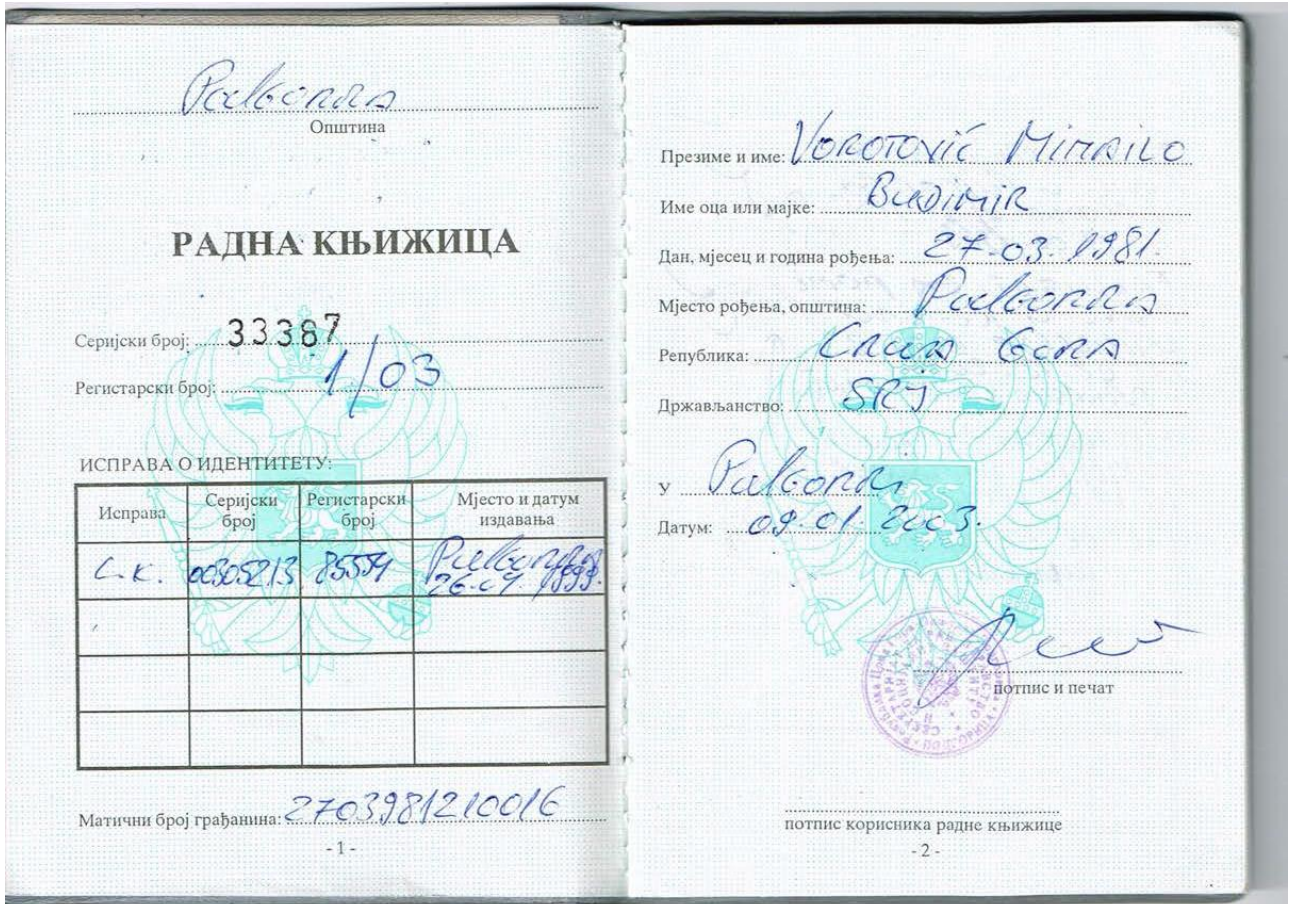 Podgorica
Општина
РАДНА КЊИЖИЦА
Серијски број: 33387
Регистарски број: 1/03
ИСПРАВА О ИДЕНТИТЕТУ:
Исправа Серијски број Регистарски број Мјесто и датум издавања
L.K. 00305213 85554 Podgorica
Матични број грађанина: 2703981210016
- 1 -
Презиме и име: VOROTOVIĆ MIHAILO
Име оца или мајке: BUDIMIR
Дан, мјесец и година рођења: 27-03.1981.
Мјесто рођења, општина: Podgorica
Република: Crna Gora
Држављанство: SRJ
У Podgorici
Датум: 09.01.2003.
потпис и печат
потпис корисника радне књижице
- 2 -